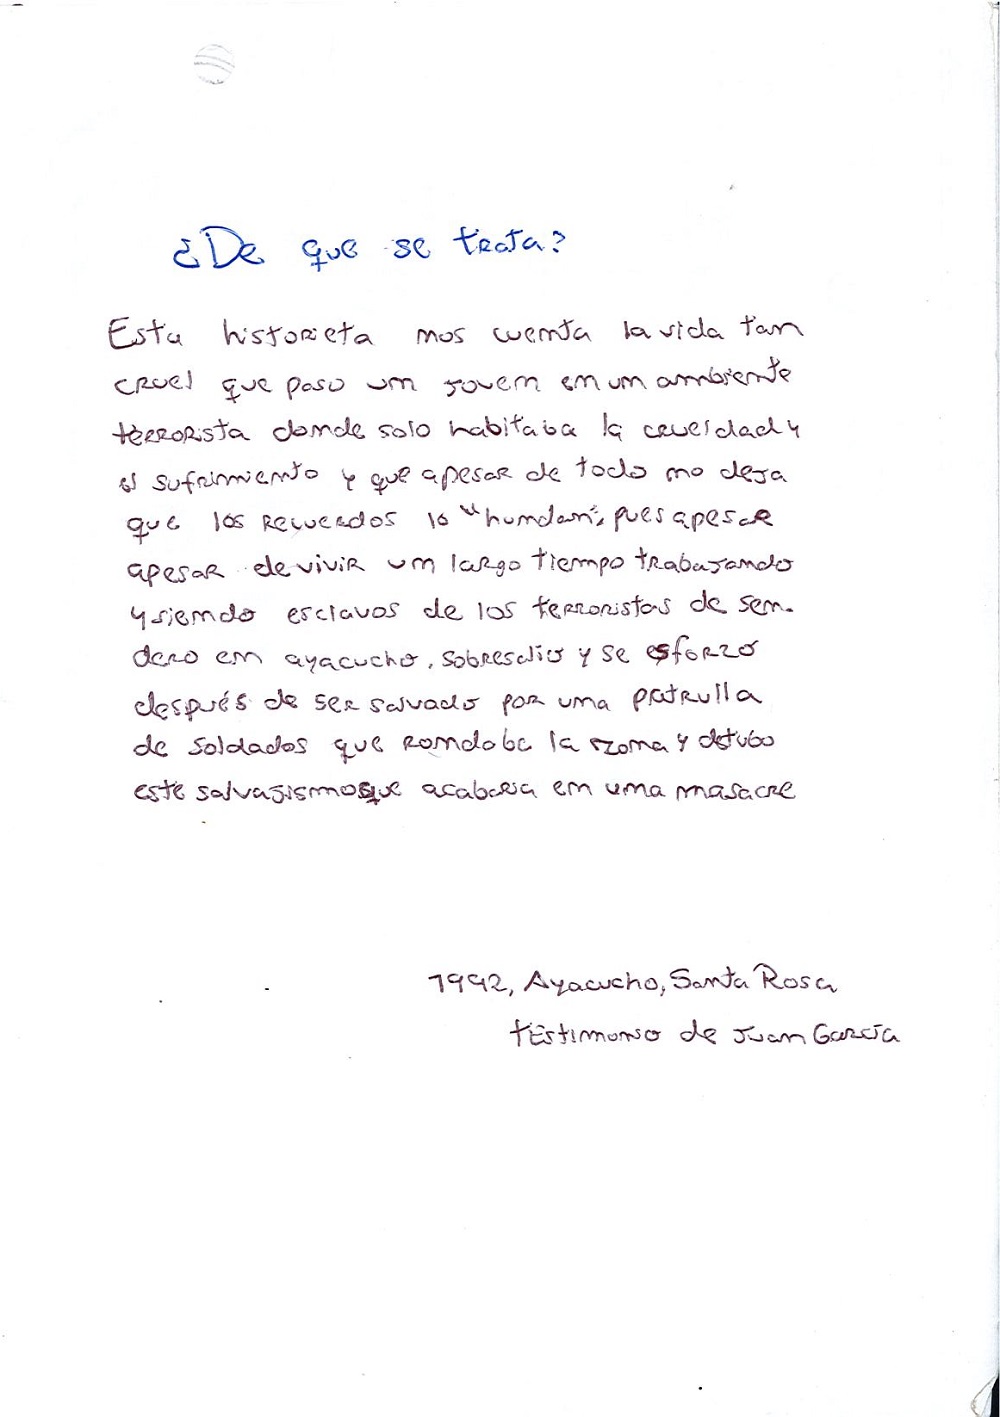 ¿De que se trata?
Esta historieta nos cuenta la vida tan
cruel que paso un joven en un ambiente
terrorista donde solo habitaba la crueldad y
el sufrimiento y que apesar de todo no deja
que los recuerdos lo "hundan", pues apesar
apesar de vivir un largo tiempo trabajando
y siendo esclavos de los terroristas de sen-
dero en ayacucho, sobresalio y se esforzo
después de ser salvado por una patrulla
de soldados que rondaba la zona y detubo
este salvajismo que acabaria en una masacre
1992, Ayacucho, Santa Rosa
testimonio de Juan García